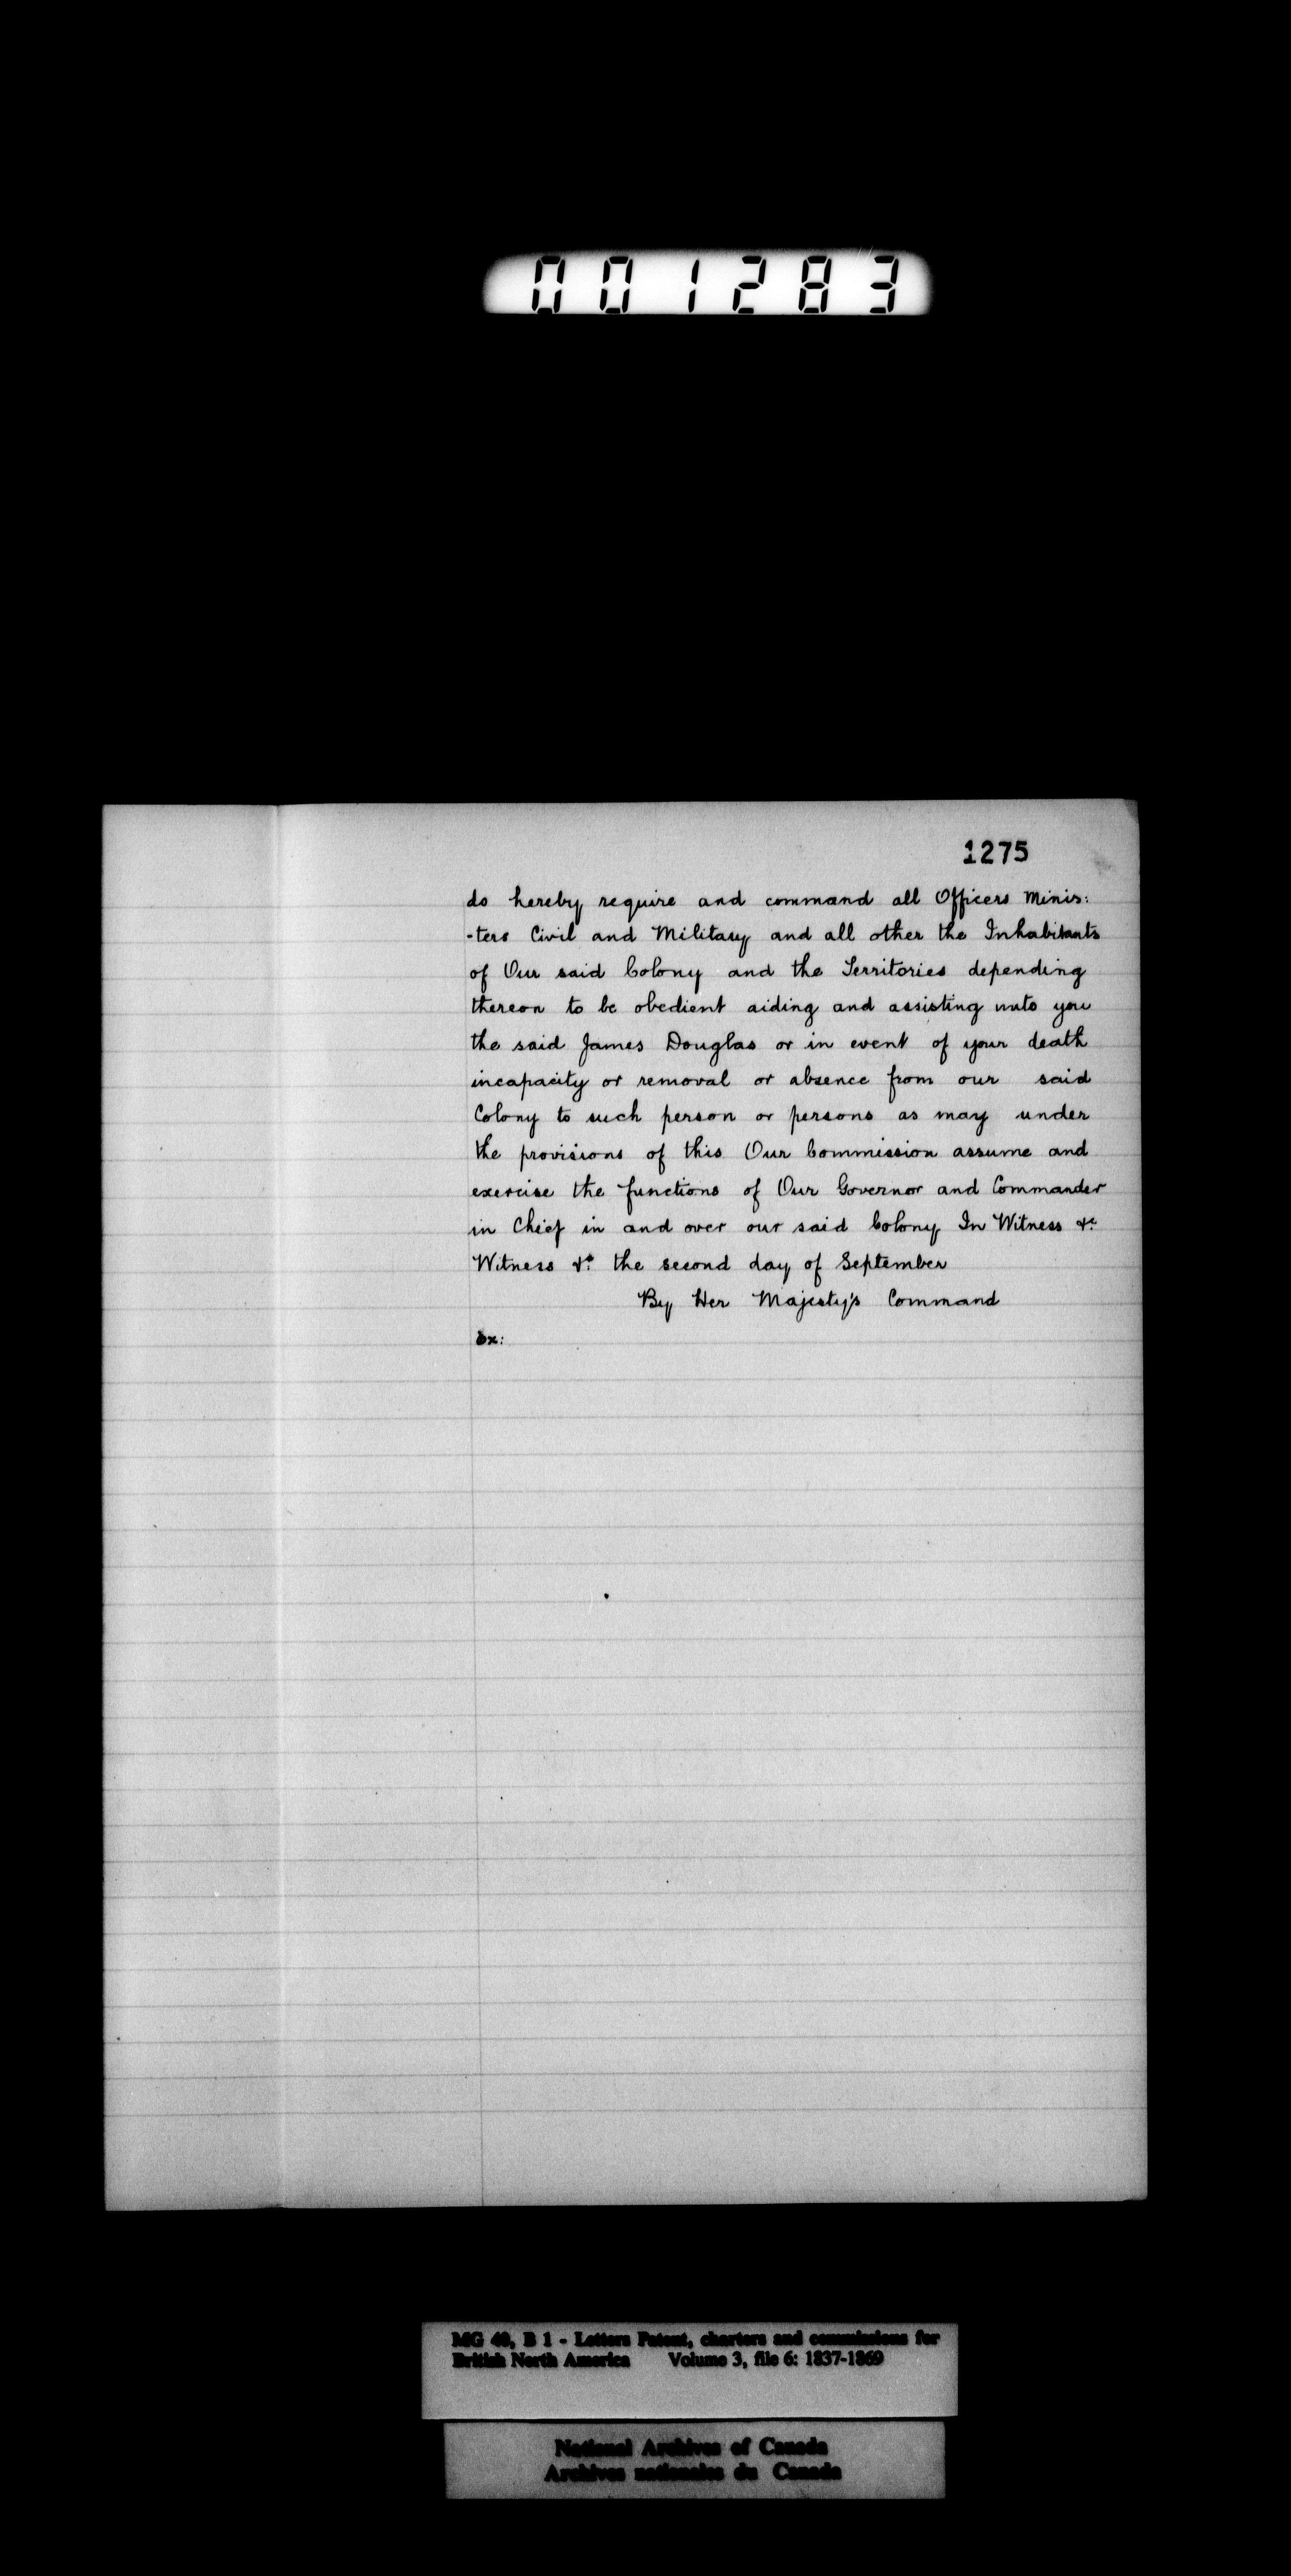 001283
1275
do hereby require and command all Officers Minis:
-ters Civil and Military and all other the Inhabitants
of Our said Colony and the Territories depending
thereon to be obedient aiding and assisting unto you
the said James Douglas or in event of your death
incapacity or removal or absence from our said
Colony to such person or persons as may under
the provisions of this Our Commission assume and
exercise the functions of Our Governor and Commander
in Chief in and over our said Colony In Witness &c
Witness &c. the second day of September
By Her Majesty's Command
Ex:
MG 40, B 1 - Letters Patent, charters and commissions for
British North America Volume 3, file 6: 1837-1869
National Archives of Canada
Archives nationales du Canada